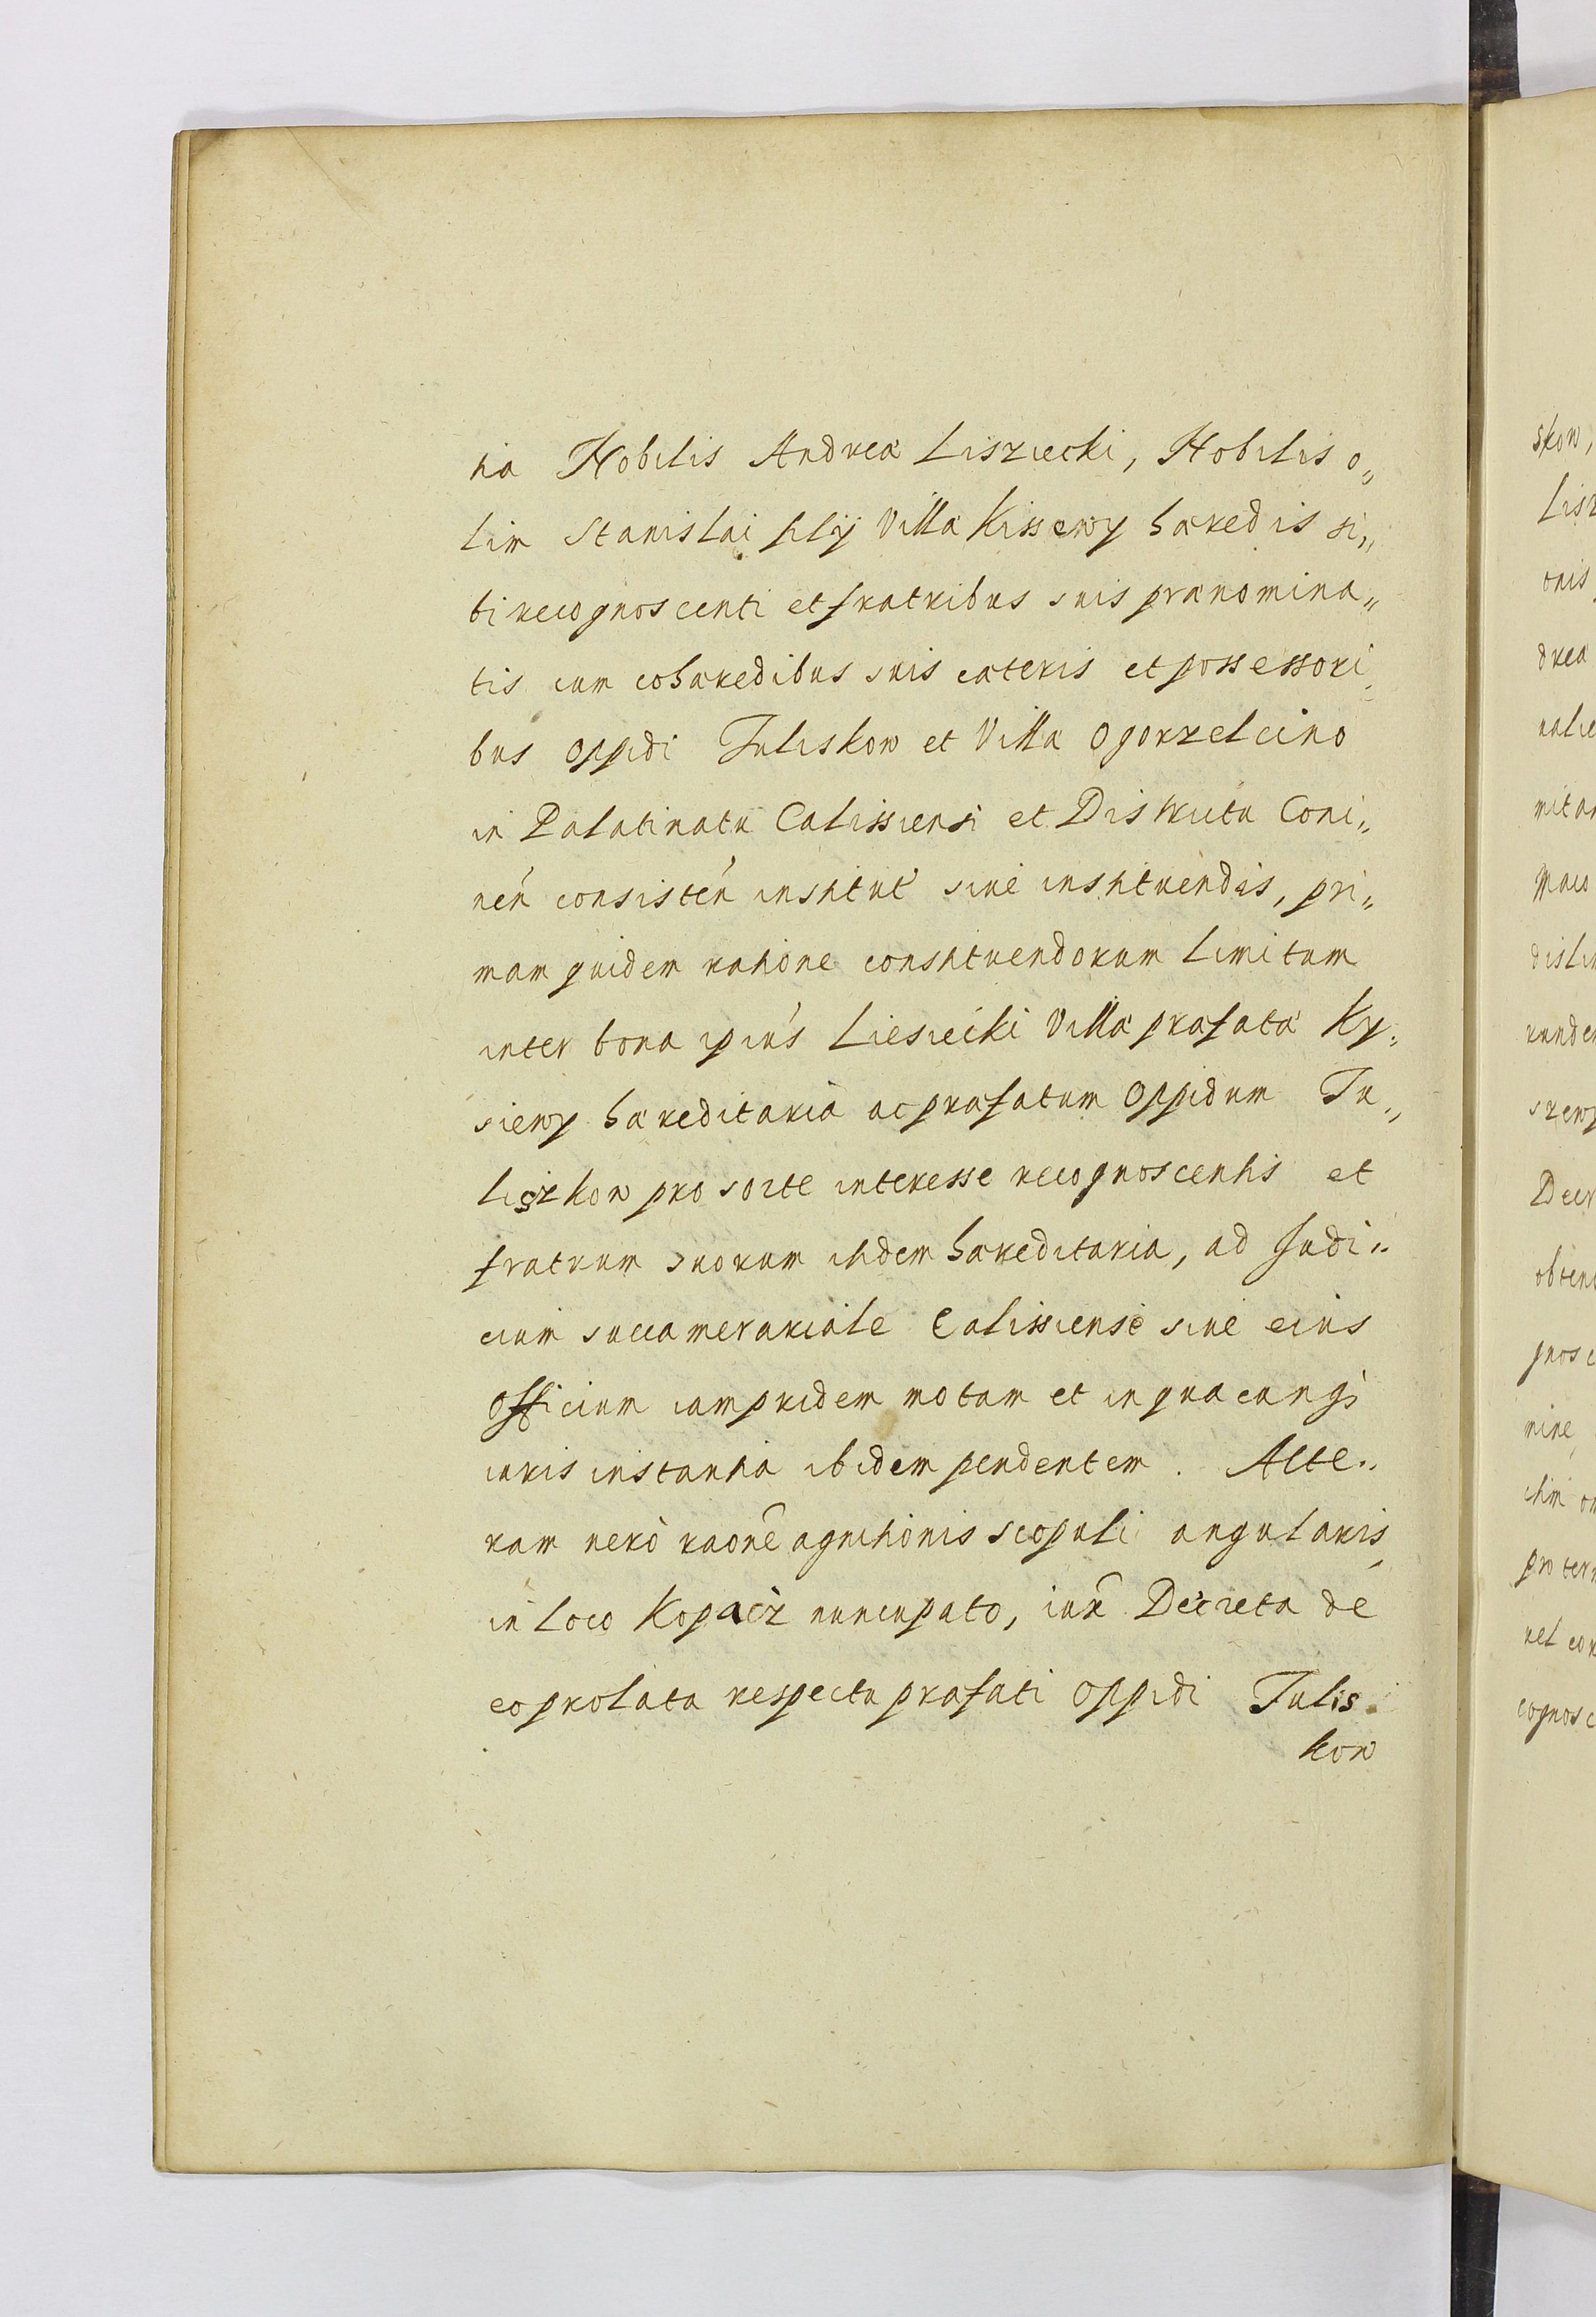 tia Nobilis Andreæ Lisziecki, Nobilis o„
lim Stanislai filij Villæ Kissewy hæredis si„
bi recognoscenti et fratribus suis prænomina„
tis cum cohæredibus suis cæteris et possessori„
bus oppidi Tuliskow et Villa Ogorzelcino
in Palatinatu Calissiensi et Districtu Coni„
neń consisteń institut' siue instituendis, pri„
mam quidem ratione constituendorum limitum
inter bona ipius Liesiecki Villæ præfatæ Ky„
siewy hæreditaria ac præfatum Oppidum Tu„
liszkow pro sorte interesse recognoscentis et
fratrum suorum itidem hæreditaria, ad Judi„
cium succamerariale Calissiense siue eius
Officium iampridem motam et in quacunq;
iuris instantia ibidem pendentem. Alte„
ram uerò raōne agnitionis scopuli angularis
in loco Kopacz nuncupato, iux̃ Decreta de
eo prolata respectu præfati Oppidi Tulis„
kow
skow,
Lisz
onis
dreæ
ualie
mitan
Maco
dislim
rundem
szewy
Decr
obten
gnosc
nine
itim om
pro term
uel cor
cognosc